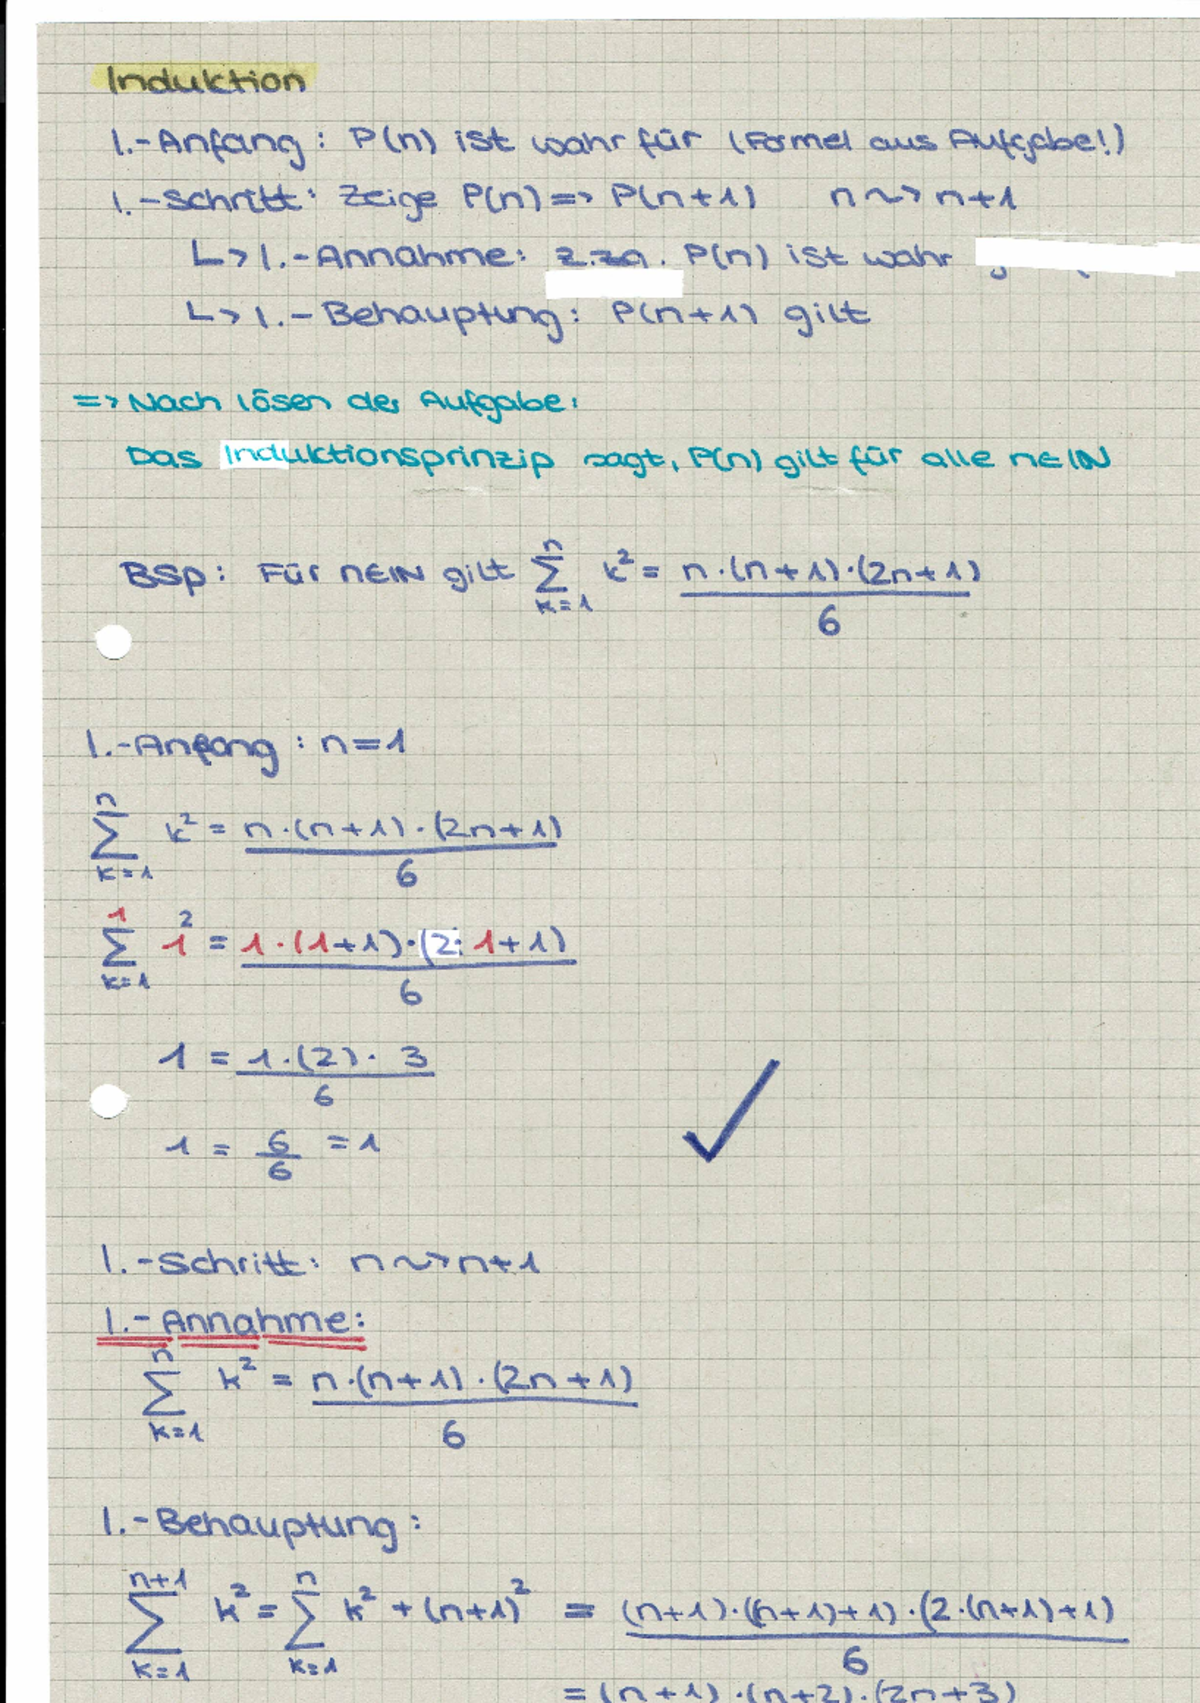 Induktion
I.-Anfang: P(n) ist wahr für (Formel aus Aufgabe!)
I.-Schritt: Zeige P(n) => P(n+1) n ~> n+1
L> I.-Annahme: z.zg. P(n) ist wahr
L> I.-Behauptung: P(n+1) gilt
=> Nach lösen der Aufgabe:
Das Induktionsprinzip sagt, P(n) gilt für alle n∈ℕ
BSp: Für n∈ℕ gilt ∑_{k=1}^{n} k² = n·(n+1)·(2n+1) / 6
I.-Anfang: n=1
∑_{k=1}^{n} k² = n·(n+1)·(2n+1) / 6
∑_{k=1}^{1} 1² = 1·(1+1)·(2·1+1) / 6
1 = 1·(2)·3 / 6
1 = 6/6 = 1
I.-Schritt: n ~> n+1
I.-Annahme:
∑_{k=1}^{n} k² = n·(n+1)·(2n+1) / 6
I.-Behauptung:
∑_{k=1}^{n+1} k² = ∑_{k=1}^{n} k² + (n+1)² = (n+1)·((n+1)+1)·(2·(n+1)+1) / 6
= (n+1)·(n+2)·(2n+3)